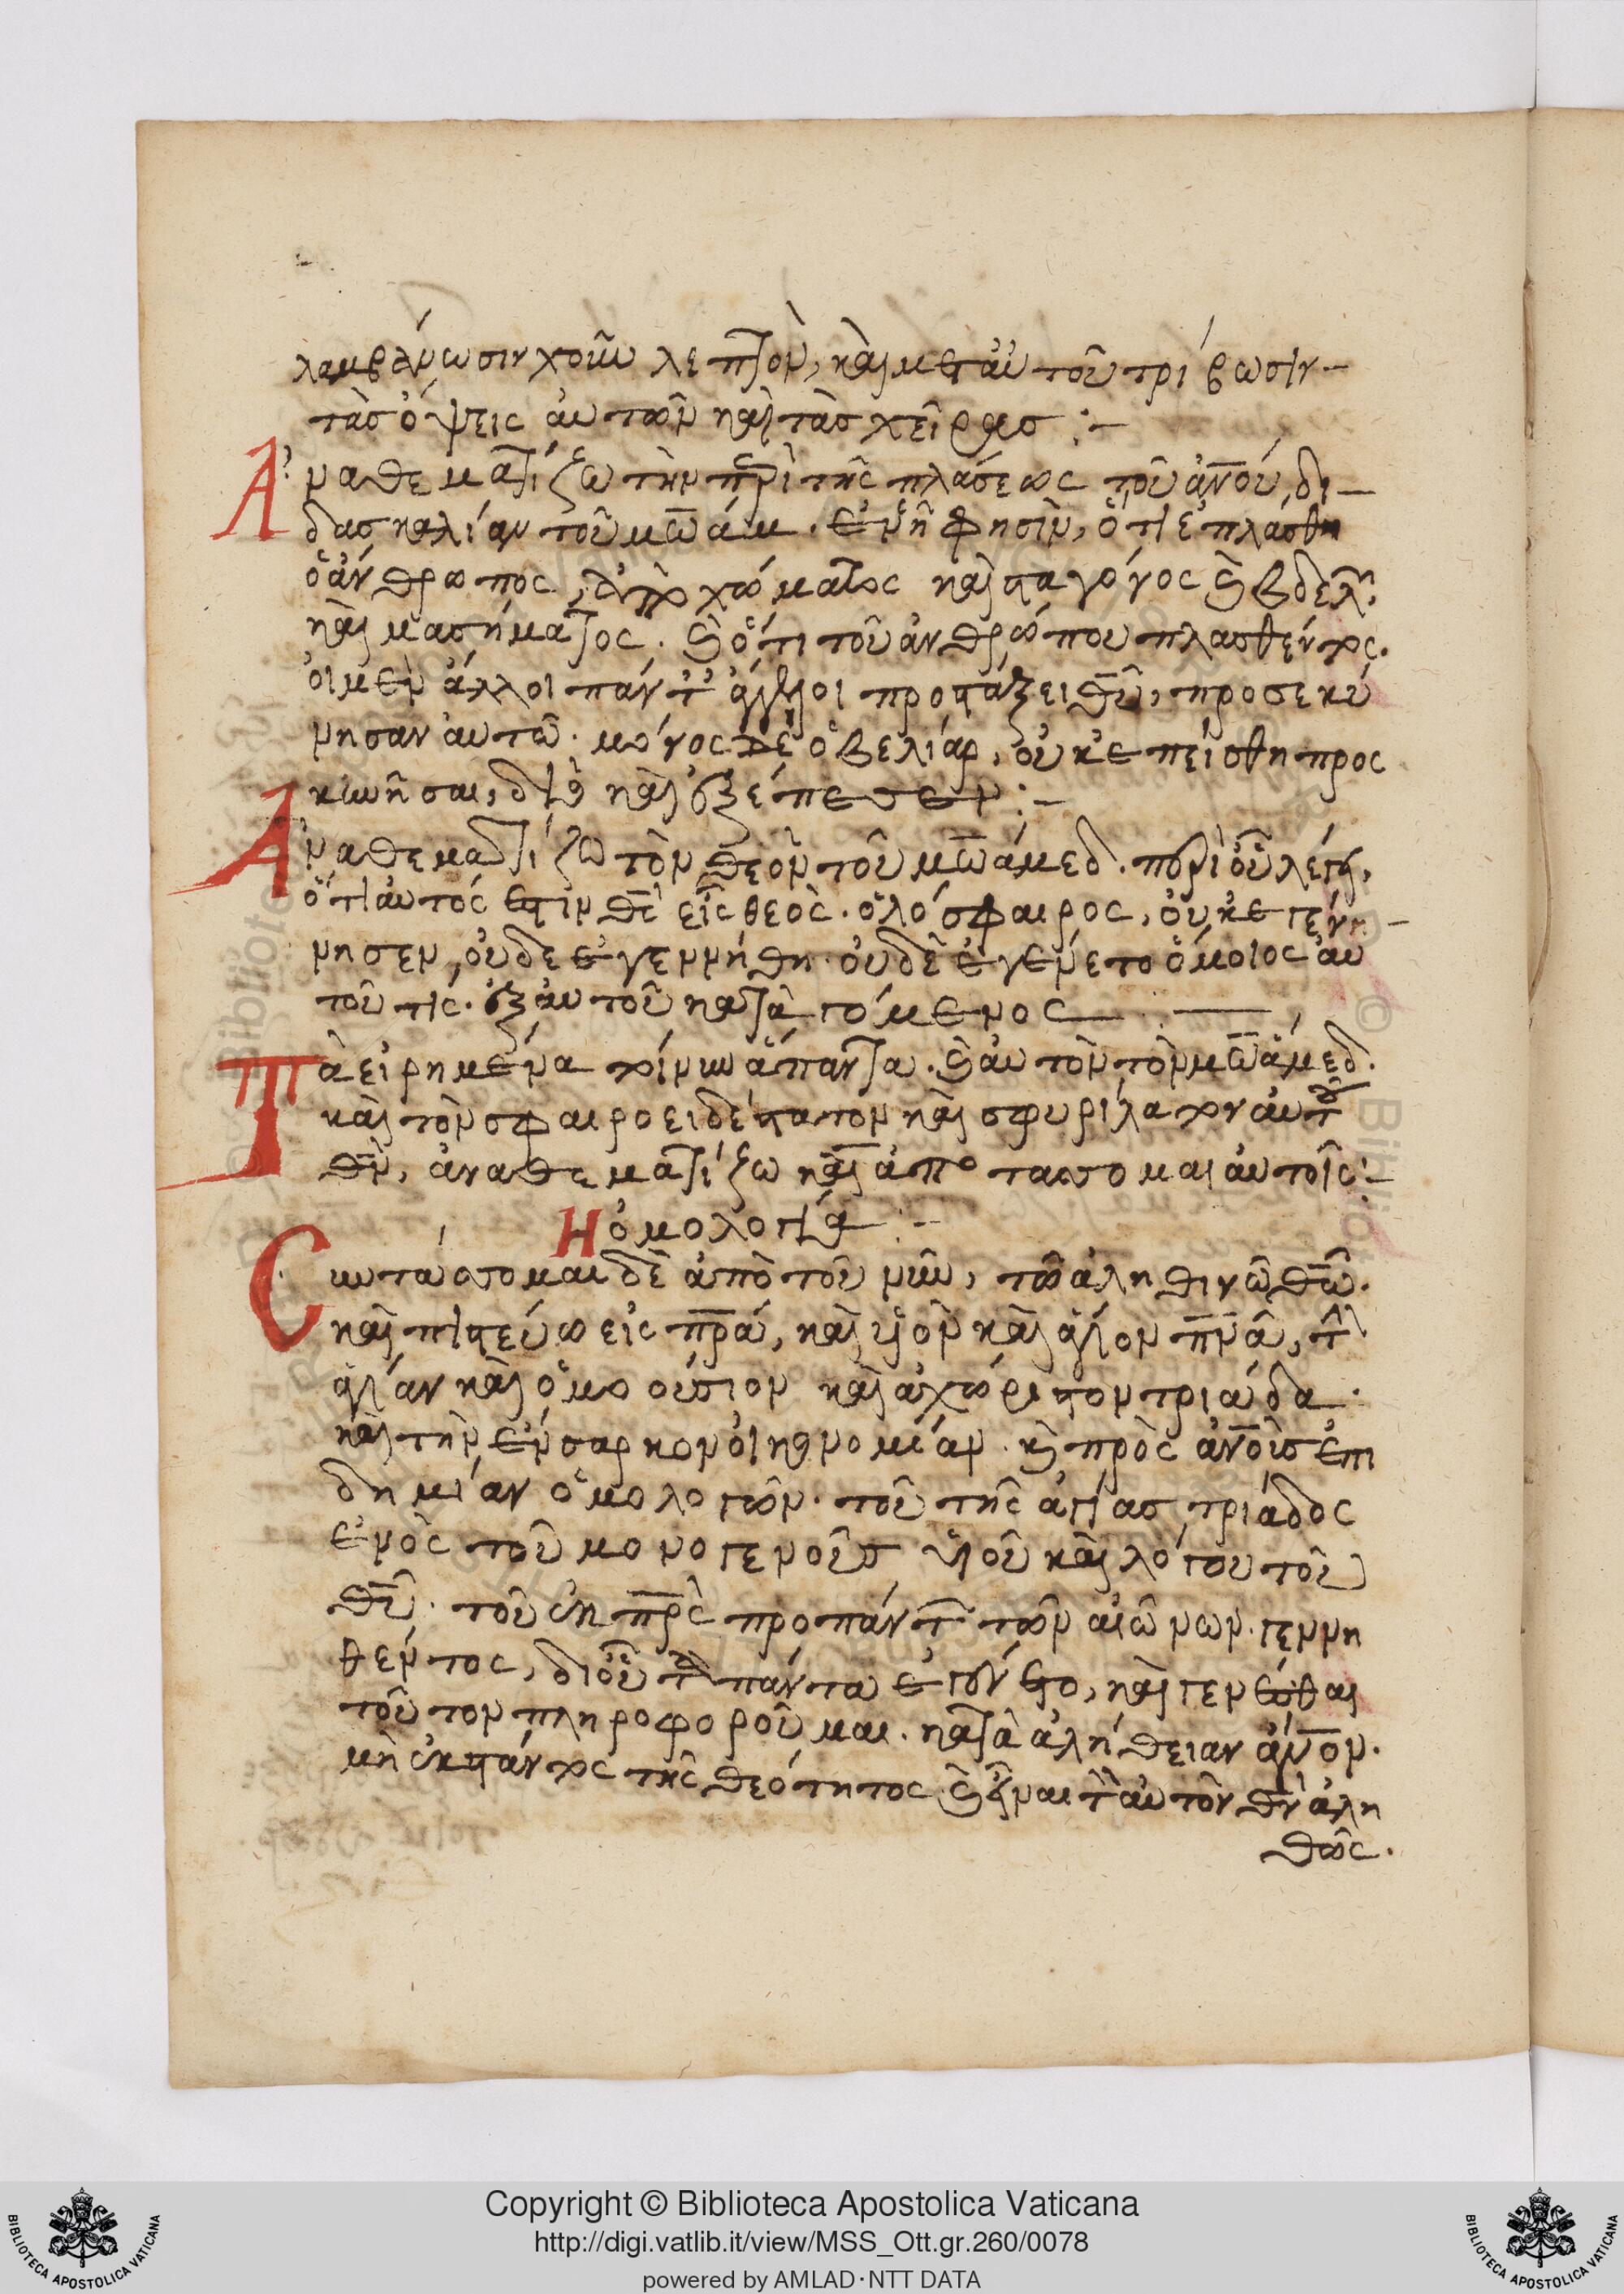 λαμβάνωσιν χοῦν λεπτὸν, καὶ μετ' αὐτοῦ τρίβωσιν
τὰς ὄψεις αὐτῶν καὶ τὰς χεῖρας :-
Ἀναθεματίζω τὴν περὶ τῆς πλάσεως τοῦ ἀνου, δι-
δασκαλίαν τοῦ μωάμ. ἐν ᾗ φησὶν, ὅτι ἐπλάσθη
ὁ ἄνθρωπος, ἀπὸ χώματος καὶ σταγόνος καὶ βδελ,
καὶ μασήματος. καὶ ὅτι τοῦ ἀνθρώπου πλασθέντος.
οἱ μὲν ἄλλοι πάντ ἄγγελοι προστάξει θυ, προσεκύ
νησαν αὐτῶ. μόνος δὲ ὁ βελίαρ, οὐκ ἐπείσθη προσ
κυνῆσαι, διὸ καὶ ἐξέπεσεν :-
Ἀναθεματίζω τὸν θεὸν τοῦ μωάμεδ. περὶ οὗ λέγει,
ὅτι αὐτός ἐστιν θς εἷς θεὸς. ὁλόσφαιρος, οὐκ ἐγέν
νησεν, οὐδε ἐγεννήθη. οὐδὲ ἐγένετο ὅμοιος αὐ
τοῦ τίς. ἐξ αὐτοῦ κατὰ γόμενος
Τὰ εἰρημένα τοίνυν ἅπαντα. καὶ αὐτὸν τὸν μωάμεδ.
καὶ τὸν σφαιροειδέστατον καὶ σφυρίλατον αὐτοῦ
θν, ἀναθεματίζω καὶ ἀποτάσσομαι αὐτοῖς :-
Η ὁμολογία :-
Συντάσσομαι δὲ ἀπὸ τοῦ νῦν, τῶ ἀληθινῶ θω.
καὶ πιστεύω εἰς πρα, καὶ υἱὸν καὶ ἅγιον πνα, τὴν
ἁγίαν καὶ ὁμοούσιον καὶ ἀχώριστον τριάδα.
καὶ τὴν ἔνσαρκον οἰκονομίαν. καὶ πρὸς ἀνοις ἐπι
δημίαν ὁμολογῶν. τοῦ τῆς ἁγίας τριάδος
ἑνὸς τοῦ μονογενοῦς υἱοῦ καὶ λόγου τοῦ
θυ. τοῦ ἐκ πρς προπάντων τῶν αἰώνων. γεννη
θέντος, δι οὗ τὰ πάντα ἐγένετο, καὶ γενέσθαι
τοῦτον πληροφοροῦμαι. κατὰ ἀλήθειαν ἀνον.
μὴ ἐκστάντος τῆς θεότητος καὶ εἶναι τὸν αὐτὸν θν ἀλη
θῶς.
Copyright © Biblioteca Apostolica Vaticana
http://digi.vatlib.it/view/MSS_Ott.gr.260/0078
powered by AMLAD·NTT DATA